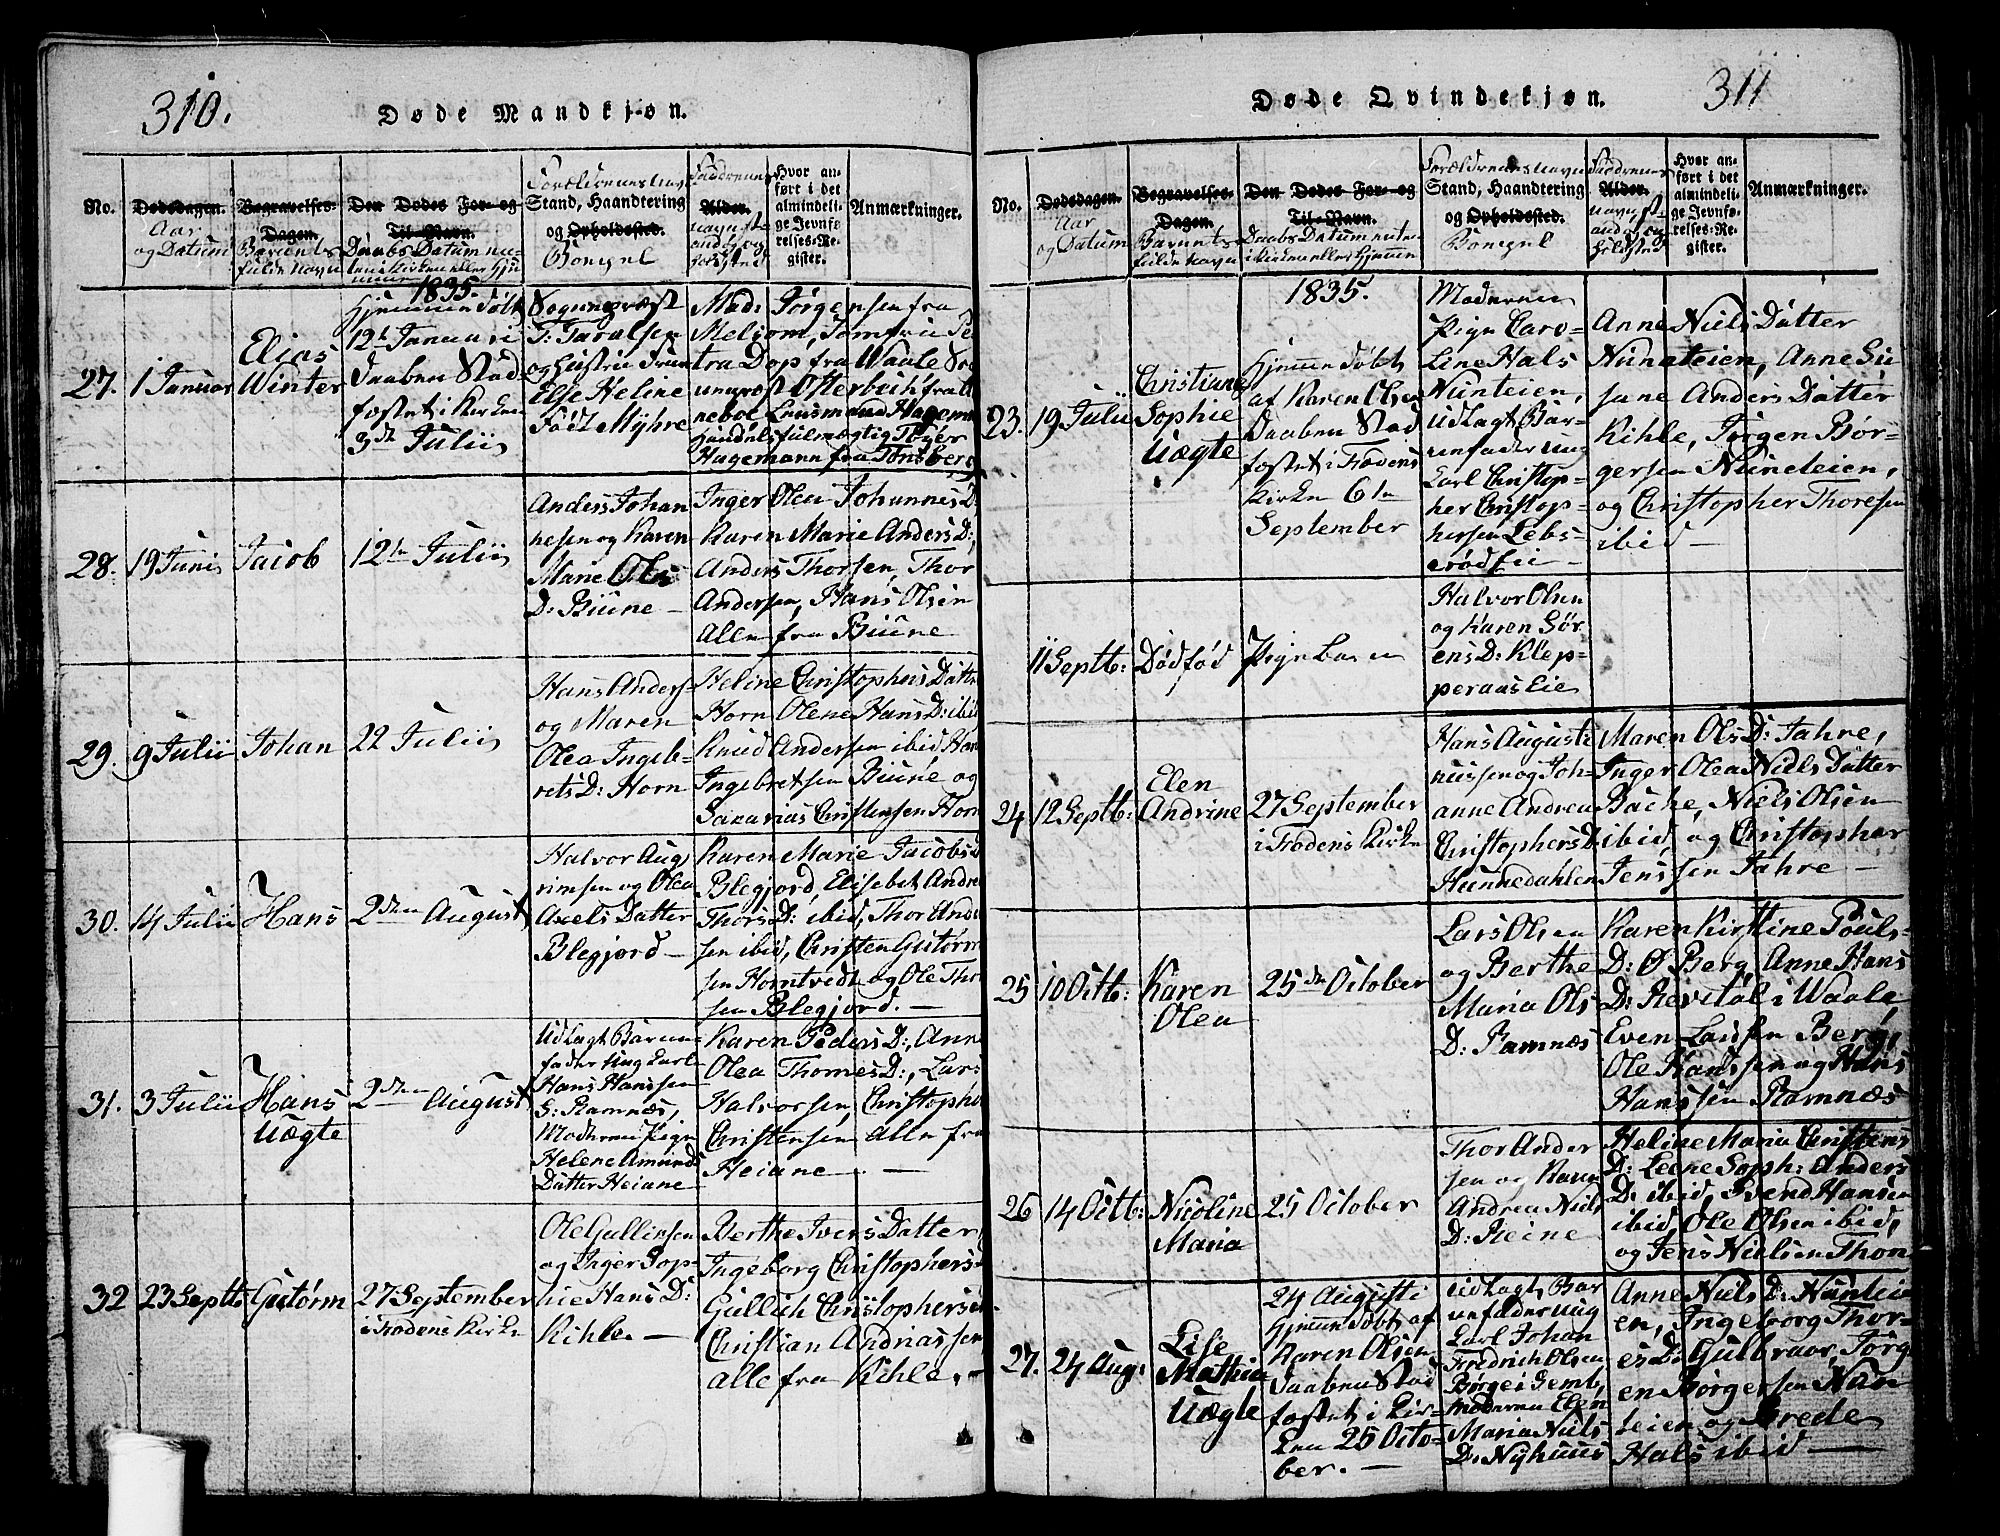 310.
Døde Mandkjøn.
No.
Dødsdagen.
Aar
og Datum
Begravelses-
Dagen.
Barnets
fulde Navn
Den Dødes For- og
Til-Navn.
Daabs Datum en-
ten i Kirken eller Hjem
Forældrenes Navn
Stand, Haandtering
og Opholdssted.
Bonigel
Faddrenes
Alder.
Navn St-
and og og
Hvor an-
ført i det
almindeli-
ge Jevnfø-
relses-Re-
gister.
Anmærkninger.
27.
1 Januar
Elias
Winter
1835.
Hjemme Døbt
12te Januari
Daaben Stad
fæstet i Kirken
3de Julii
Sognepræst
T. Taralsen
og Hustrue Frue
Else Heline
Født Myhre
Mad: Jørgensen fra
Melsom, Jomfrue Pe
tra Dop fra Waale Sog
nepræst Østerbech fra A
neboe Lensmand Hagemann
Handelsfulmægtig Toger
Hagemann fra Tønsberg
28.
19 Junii
Jacob
12te Julii
Anders Johan
nesen og Karen
Marie Ols
D: Biüne —
Inger Olea Johannes D:
Karen Marie Anders D:,
Anders Thorsen, Thor
Andersen, Hans Olsen
Alle fra Biüne
29.
9 Julii
Johan
22 Julii
Hans Anders-
og Maren
Olea Ingeb-
rets D: Horn
Heline Christophers Datter
Horn Olene Hans D: ibid
Knud Andersen ibid Han
Ingebretsen Biüne og
Sacarias Christensen Horn
30.
14 Julii
Hans
2den August
Halvor Aug
rimsen og Olea
Axels Datter
Blegjord —
Karen Marie Jacobs D
Blegjord, Elisebet Andrea
Thors D: ibid, Thor Ander
sen ibid, Christen Gutorm
sen Horntvedt og Ole Thor
sen Blegjord. —
31.
3 Julii
Hans
Uægte
2den August
Udlagt Barne
fader ung Carl
Hans Hanssen
G: Ramnæs,
Moderen Pige
Helene Amunds
Datter Heiane
Karen Peders D:, Anne
Olea Thomes D:, Lars
Halvorsen, Christopher
Christensen alle fra
Heiane. —
32
23 Septb
Gutorm
27 September
i Fodens Kirke
Ole Gullichsen
og Inger Sop-
hie Hans D:
Kihle. —
Berthe Ivers Datter,
Ingeborg Christophers D
Gullich Christophersen
Christian Andriassen,
alle fra Kihle. —
311
Døde Qvindekjøn.
No.
Dødsdagen.
Aar
og Datum
Begravelses-
Dagen.
Barnets
fulde Navn
Den Dødes For- og
Til-Navn.
Daabs Datum enten
i Kirken eller Hjemme
Forældrenes Navn
Stand, Haandtering
og Opholdssted.
Bonigel
Faddrenes
Alder.
Hvor an-
ført i det
almindeli-
ge Jevnfø-
relses-Re-
gister.
Anmærkninger.
23.
19 Julii
Christiane
Sophie
Uægte
1835.
Hjemme Døbt
af Karen Olsen
Daaben Stad
fæstet i Fodens
Kirke 6te
September
Moderen
Pige Caro-
line Hals
Nunteien,
Udlagt Bar-
nefader ung
Carl Christop-
her Christop-
hersen Lebs-
erød Eie —
Anne Niels Datter
Nunateien, Anne Su
sane Anders Datter
Kihle, Jørgen Bør-
gersen Nuneteien,
og Christopher Thoresen
ibid —
11 Septb:
Dødfød
Pigebarn
Halvor Olsen
og Karen Sør-
ens D: Klep-
peraas Eie
24
12 Septb:
Elen
Andrine
27 September
i Fodens Kirke
Hans Augusti
nussen og Joh-
anne Andrea
Christophers D:
Hunnedahlen
Maren Ols D: Jahre,
Inger Olea Niels Datter
Bache, Niels Olsen
ibid, og Christopher
Jenssen Jahre —
25
10 Octb:
Karen
Olea
25de October
Lars Olsen
og Berthe
Maria Ols
D: Ramnæs
Karen Kirstine Pouls-
D: Ø Berg, Anne Hans
D: Revetal i Waale
Even Larsen Berg,
Ole Hanssen og Hans
Hanssen Ramnæs
26
14 Octb:
Nicoline
Maria
25 October
Thor Ander
sen og Karen
Andrea Niels
D: Reine
Heline Maria Christens
D: Leene Soph: Anders
D: ibid, Svend Hansen
ibid, Ole Olsen ibid,
og Jens Nielsen Thon
27.
24 Aug:
Lise
Mathia
Uægte
24 Augusti
Hjemme Døbt af
Karen Olsen
Daaben Stad
fæstet i Kir-
ken 25 Octo-
ber. —
Udlagt Bar
nefader ung
Carl Johan
Fredrich Olsen
Børge i Semb,
Moderen Elen
Maria Niels
D: Nyhuus
Anne Niels D: Nuntei
en, Ingeborg Thor-
es D: Gulbraar, Jørg
en Børgersen Nun
teien og Grede
Hals ibid —